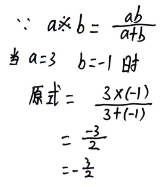 ∵ a※b = ab/(a+b)
当 a=3 b=-1 时
原式 = 3×(-1)/(3+(-1))
= -3/2
= -3/2